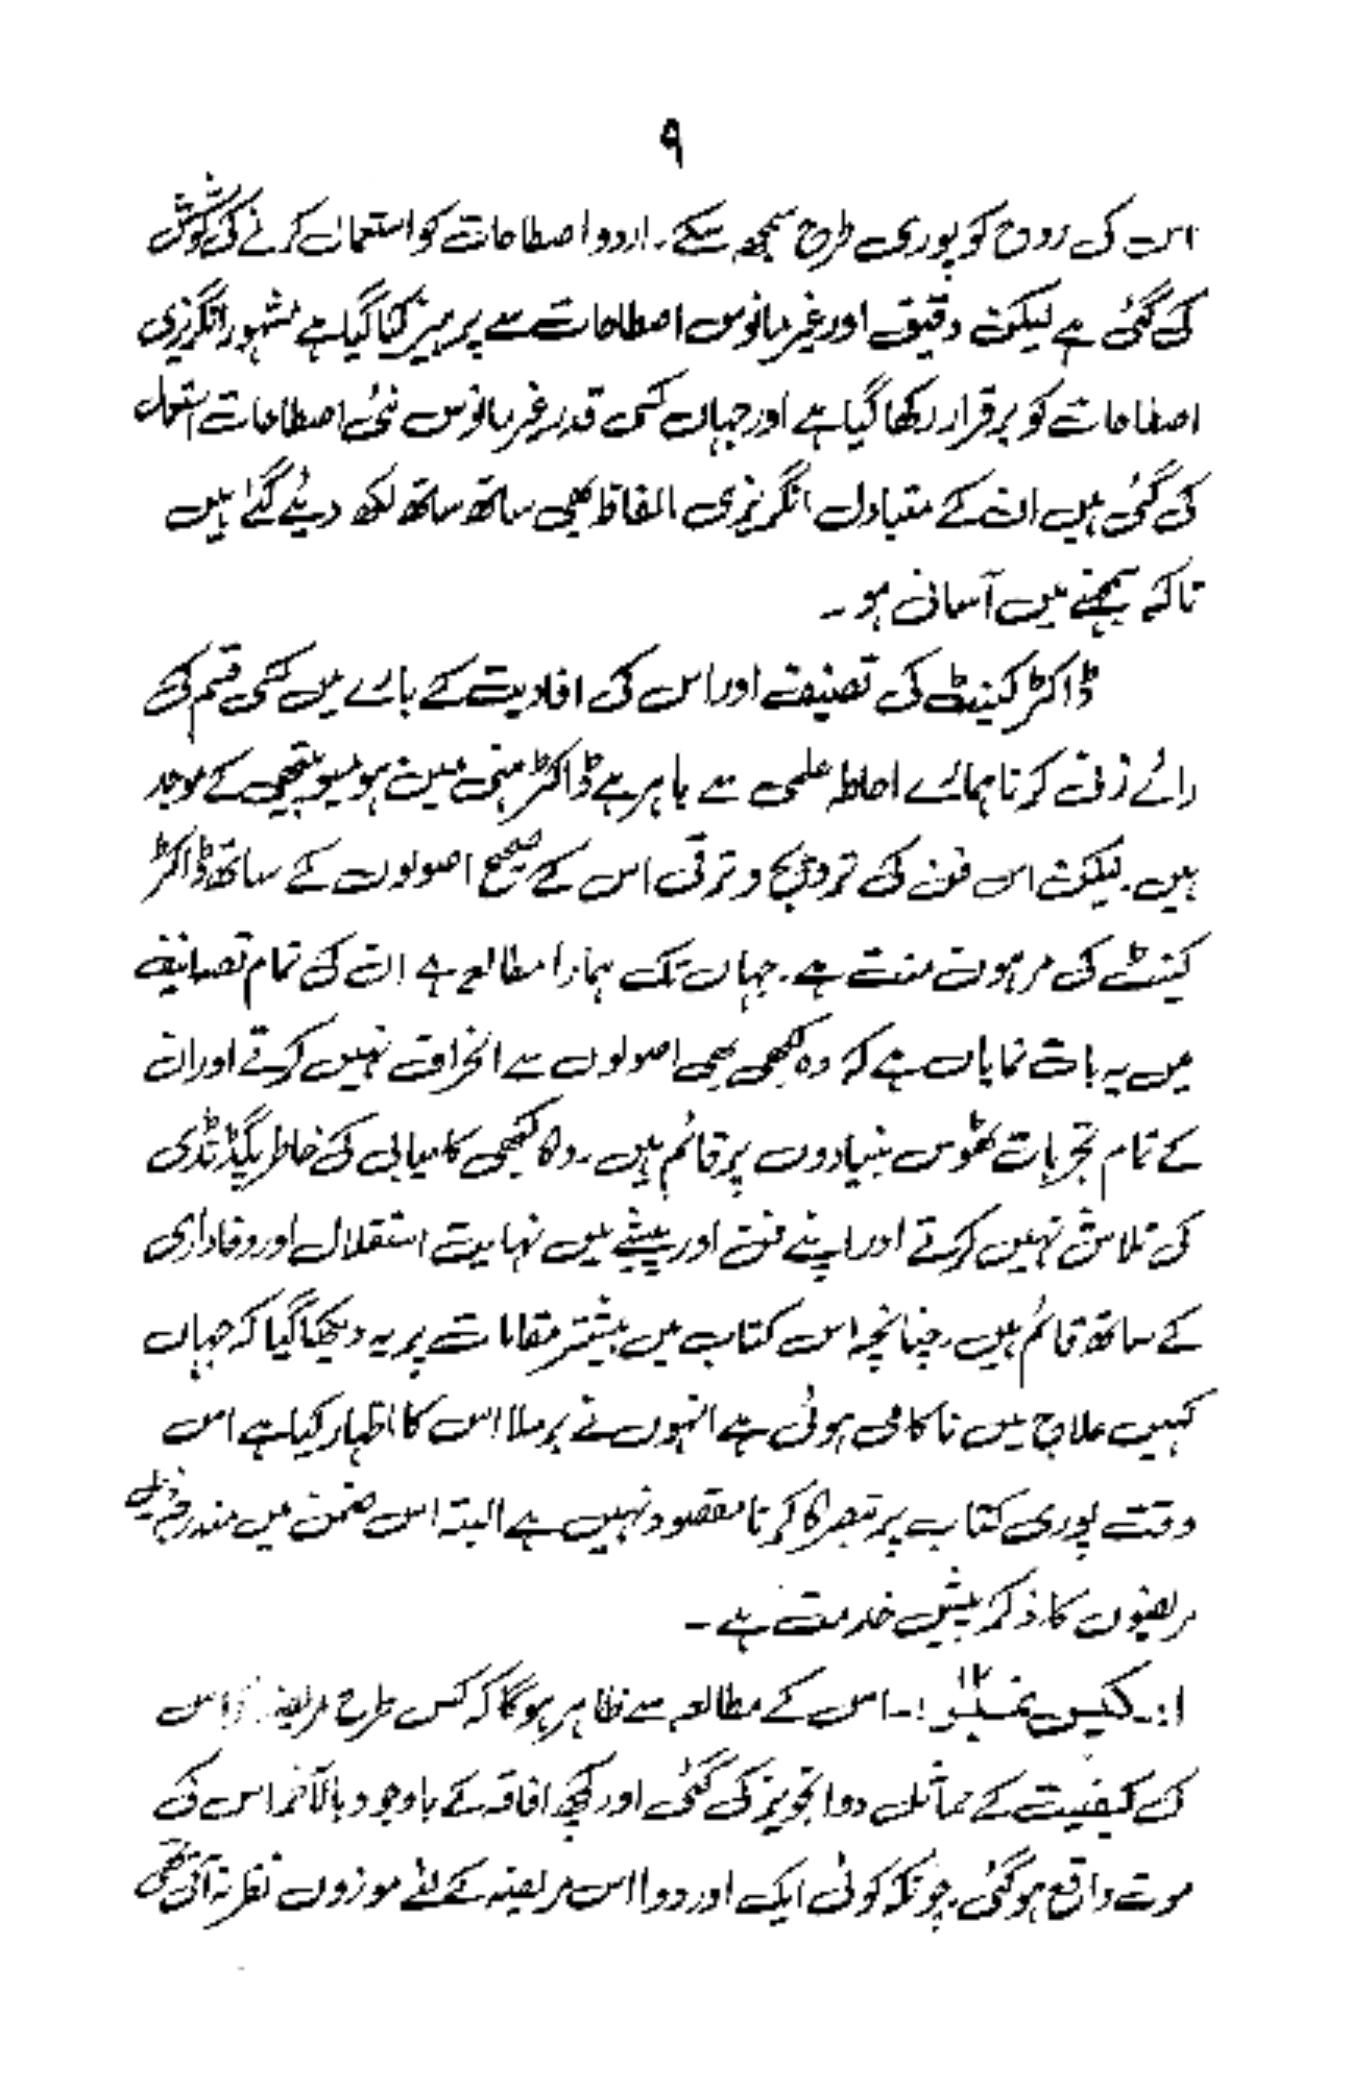 ۹
اس کی روح کو پوری طرح سمجھ سکے۔ اردو اصطلاحات کو استعمال کرنے کی کوشش
کی گئی ہے لیکن دقیق اور غیر مانوس اصطلاحات سے پرہیز کیا گیا ہے مشہور انگریزی
اصطلاحات کو برقرار رکھا گیا ہے اور جہاں کسی قدر غیر مانوس نئی اصطلاحات استعمال
کی گئی ہیں ان کے متبادل انگریزی الفاظ بھی ساتھ ساتھ لکھ دیئے گئے ہیں
تاکہ سمجھنے میں آسانی ہو۔
ڈاکٹر کینٹ کی تصنیف اور اس کی افادیت کے بارے میں کسی قسم کی
رائے زنی کرنا ہمارے احاطہ علمی سے باہر ہے ڈاکٹر ہنی مین ہومیوپیتھی کے موجد
ہیں۔ لیکن اس فن کی ترویج و ترقی اس کے صحیح اصولوں کے ساتھ ڈاکٹر
کینٹ کی مرہون منت ہے۔ جہاں تک ہمارا مطالعہ ہے ان کی تمام تصانیف
میں یہ بات نمایاں ہے کہ وہ کبھی بھی اصولوں سے انحراف نہیں کرتے اور ان
کے تمام تجربات ٹھوس بنیادوں پر قائم ہیں۔ وہ کبھی کامیابی کی خاطر پگڈنڈی
کی تلاش نہیں کرتے اور اپنے فن اور پیشے میں نہایت استقلال اور وفاداری
کے ساتھ قائم ہیں۔ چنانچہ اس کتاب میں بیشتر مقامات پر یہ دیکھا گیا کہ جہاں
کہیں علاج میں ناکامی ہوئی ہے انہوں نے برملا اس کا اظہار کیا ہے اس
وقت پوری کتاب پر تبصرہ کرنا مقصود نہیں ہے البتہ اس ضمن میں مندرجہ ذیل
مریضوں کا ذکر پیش خدمت ہے۔
۱:۔ کیس نمبر ۱۲:۔ اس کے مطالعہ سے ظاہر ہوگا کہ کس طرح اس
کی کیفیت کے مماثل دوا تجویز کی گئی اور کچھ افاقہ کے باوجود بالآخر اس کی
موت واقع ہوگئی۔ چونکہ کوئی ایک اور دوا اس مریضہ کے لئے موزوں نظر نہ آتی تھی